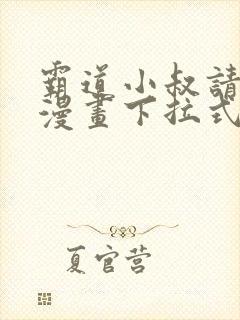 霸道小叔請
漫畫下拉式
夏官营